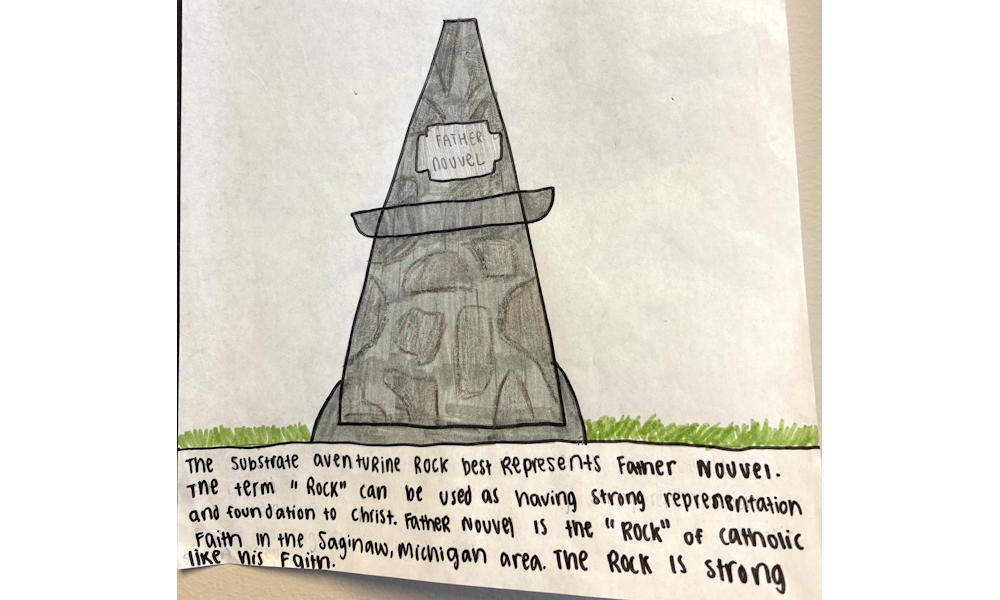 FATHER
NOUVEL
The substrate aventurine Rock best Represents Father Nouvel.
The term "Rock" can be used as having strong represnntation
and foundation to christ. Father Nouvel is the "Rock" of catholic
Faith in the Saginaw, Michigan area. The Rock is strong
like his Faith.